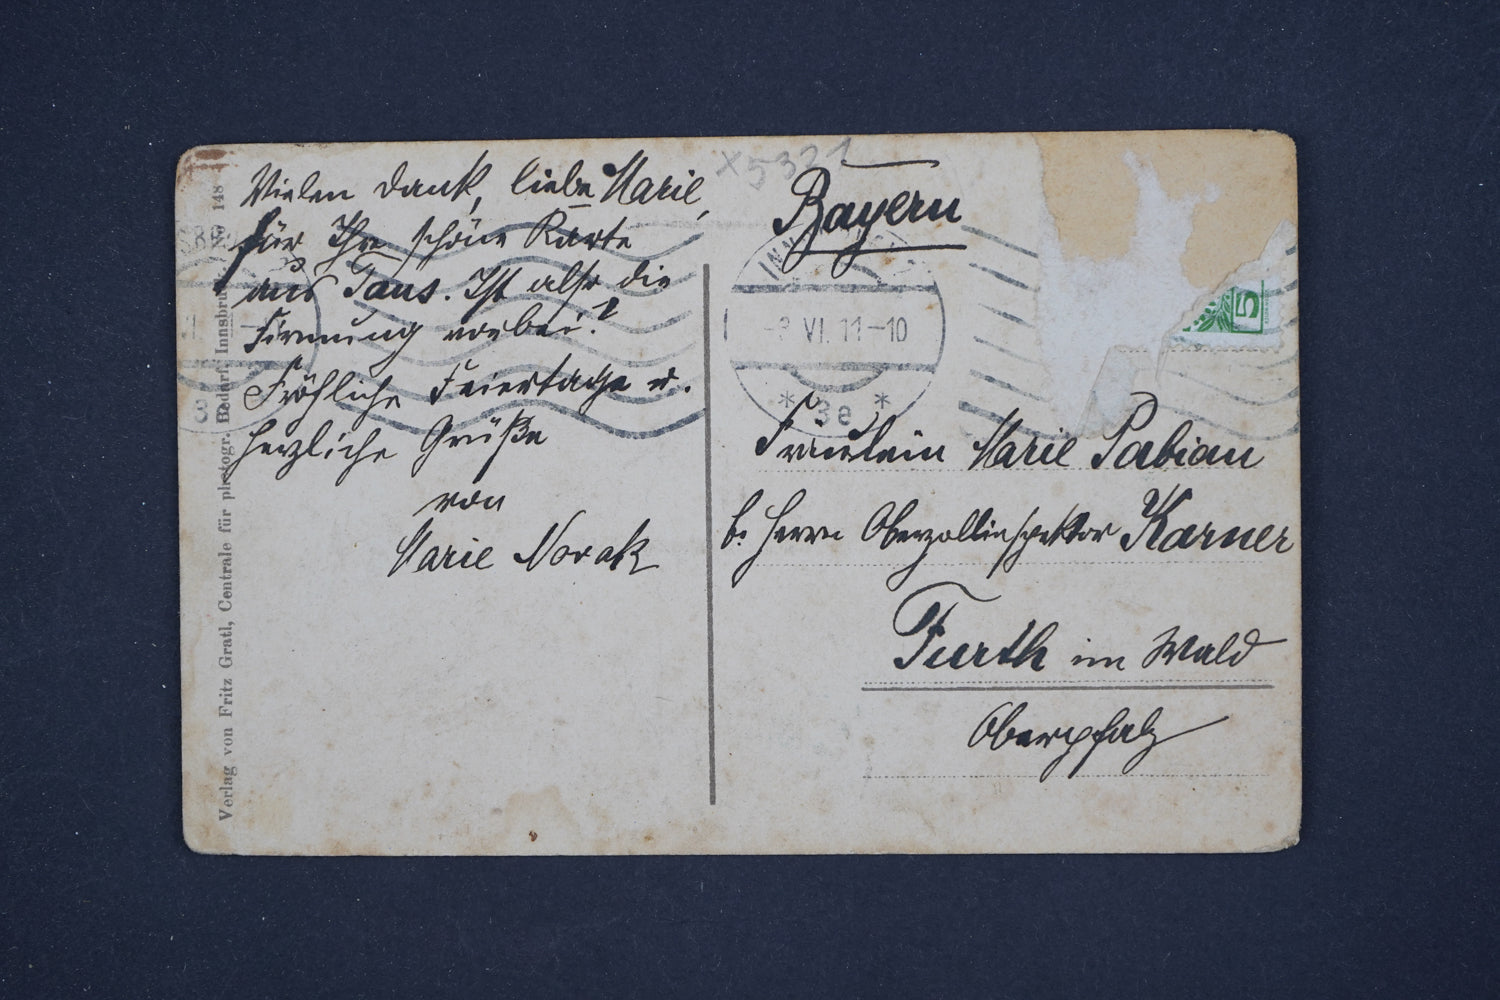 Vielen Dank, liebe Marie,
für Ihre schöne Karte
aus Taus. Ist also die
Firmung vorbei?
Fröhliche Feiertage u.
herzliche Grüße
von
Marie Novak
Verlag von Fritz Gratl, Centrale für photogr. Bedarf, Innsbruck. No 148
x5321
Bayern
-3 VI. 11-10
* 3e *
5
Fräulein Marie Pabian
b. Herrn Oberzollinspektor Karner
Furth im Wald
Oberpfalz